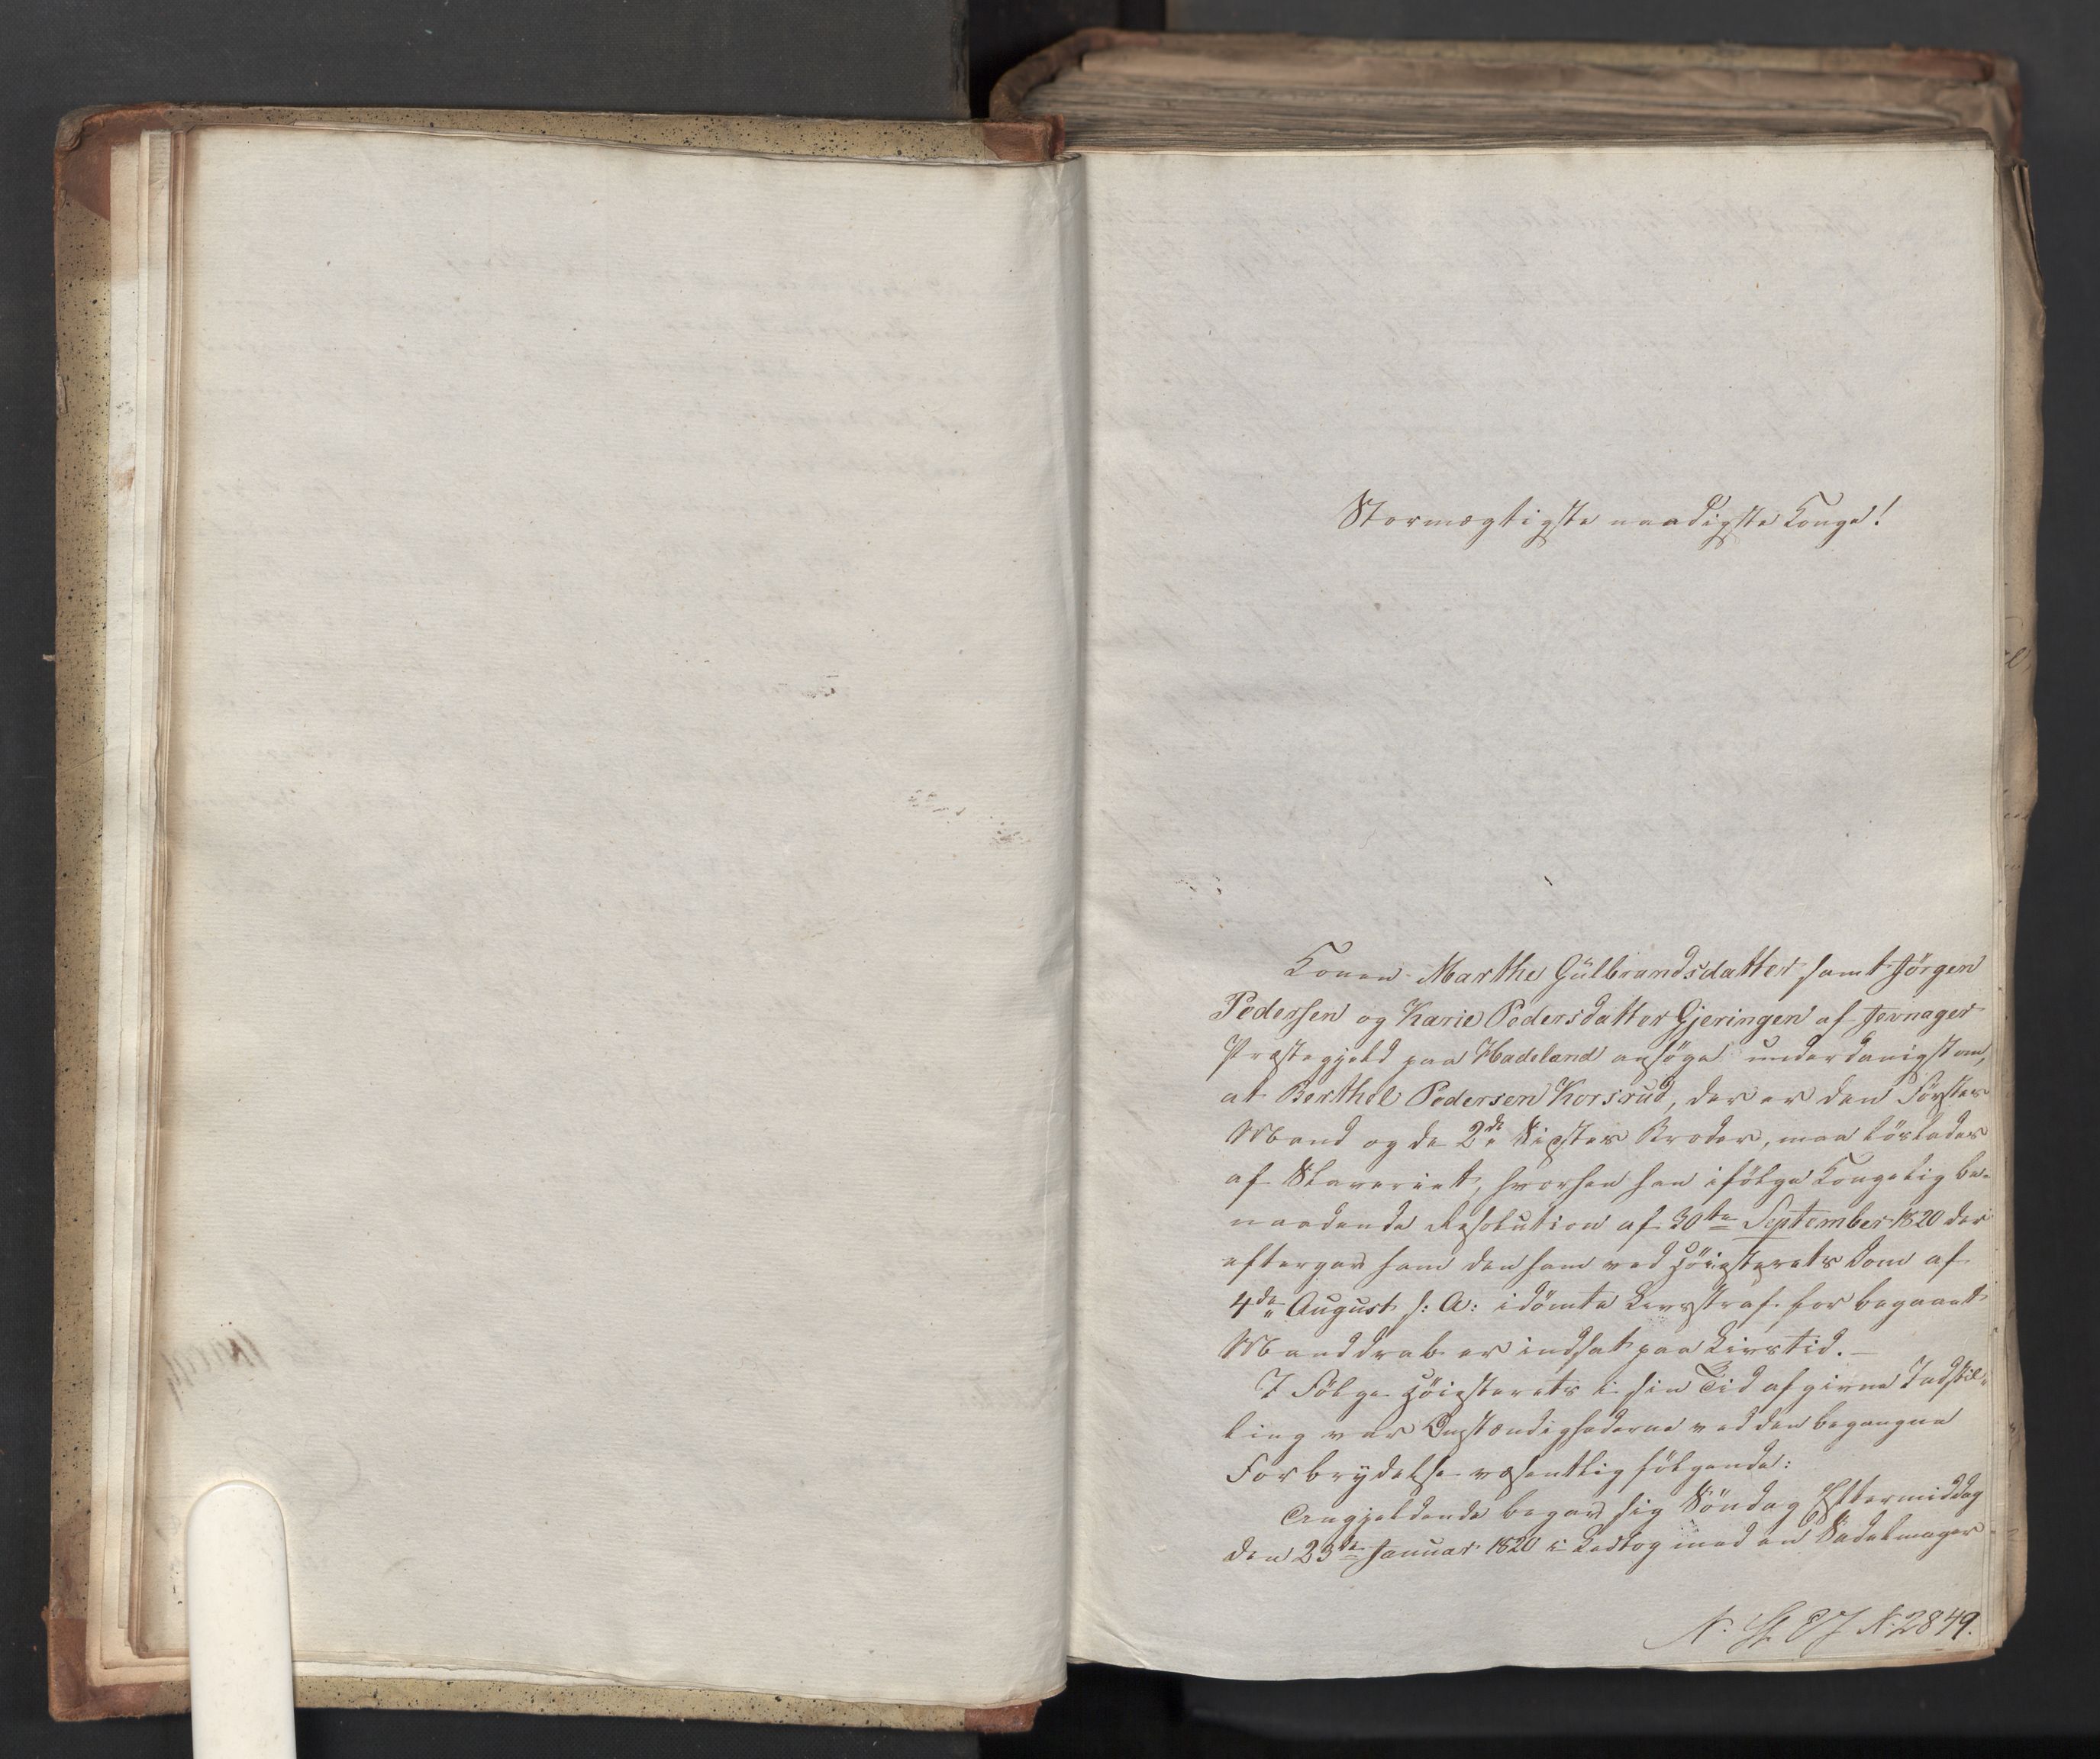 Stormægtigste naadigste Konge!
Konen Marthe Gulbrandsdatter samt Jörgen
Pedersen og Karie Pedersdatter Gjeringen af Jevnager
Præstegjeld paa Hadeland ansöge underdanigst om,
at Berthel Pedersen Korsrud, der er den Förstes
Mand og de 2de Sidstes Broder, maa löslades
af Slaveriet, hvorhen han ifölge Kongelig be-
naadende Resolution af 30te September 1820 der
eftergav ham den ham ved Höiesterets Dom af
4de August s: A: idömte Livsstraf for begaaet
Manddrab er indsat paa Livstid. —
I Fölge Höiesterets i sin Tid afgivne Indstil-
ling var Omstændighederne ved den begangne
Forbrydelse væsentlig fölgende:
Angjeldende begav sig Söndag Eftermiddag
den 23de Januar 1820 i Ledtog med en Sadelmager
N: 2849.